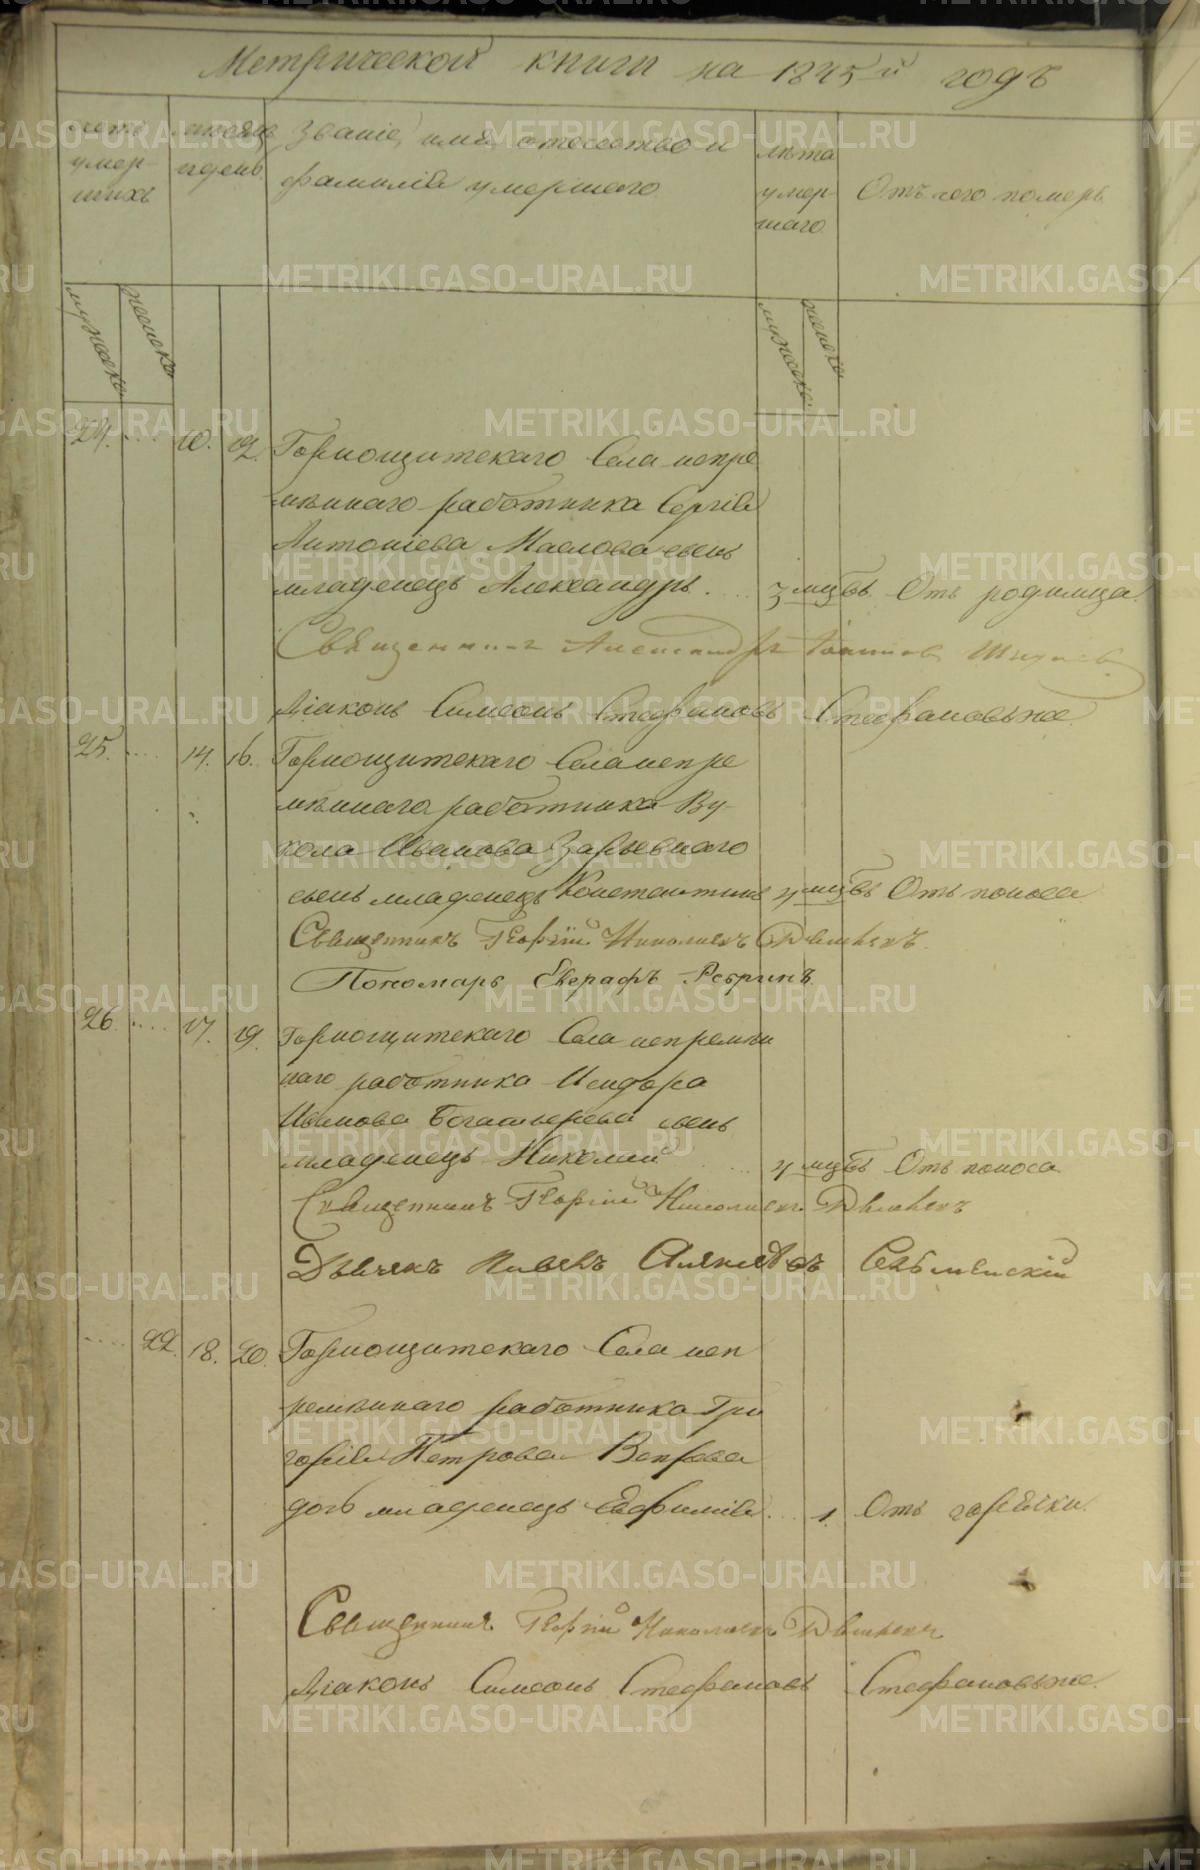 Метрической книги на 1845й годъ
счетъ умер-шихъ
месяцъ и день.
Званіе, имя, отечество и фамилія умершаго.
лѣта умер-шаго.
Отъ чего померъ
мужеска
женска
мужеска
женска
24. .... 10. 12. Горнощитскаго Села непре
мѣннаго работника Сергія
Антоніева Маслова сынъ
младенецъ Александръ. ... 3 мцѣвъ. Отъ родимца.
Священникъ Александръ
Діаконъ Симеонъ Стефановъ Стефановыхъ
25. .... 14. 16. Горнощитскаго Села непре
мѣннаго работника Ву-
кола Иванова
сынъ младенецъ Константинъ 4 мцѣвъ Отъ поноса
Священникъ Георгій Николаевъ
Пономарь Евграфъ Ребринъ.
26. .... 17. 19. Горнощитскаго Села непремѣн
наго работника Исидора
Иванова Богатырева сынъ
младенецъ Николай ... 4 мцѣвъ Отъ поноса
Священникъ Георгій Николаевъ
Дьячекъ Павелъ
.... 22. 18. 20. Горнощитскаго Села неп
ремѣннаго работника Гри
горія Петрова Вепрева
дочь младенецъ Евфимія. ... 1. Отъ горячки.
Священникъ Георгій Николаевъ
Діаконъ Симеонъ Стефановъ Стефановыхъ.
METRIKI.GASO-URAL.RU